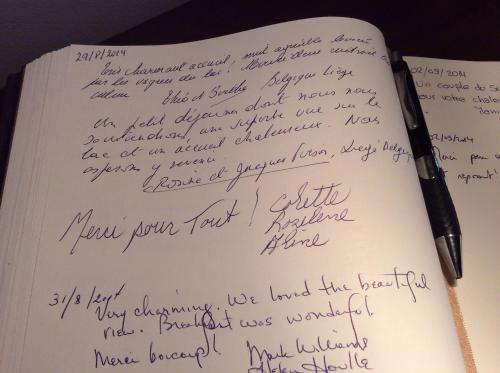 29/8/2014
Très charmant accueil, nuit agréable bercée
par les vagues du lac! Merveilleux endroit
calme Eric et Sandra Belgique Liège
Un petit déjeuner dont nous nous
souviendrons, une superbe vue sur le
lac et un accueil chaleureux. Nous
espérons y revenir.
Rosine et Jacques Liège Belgique
Merci pour Tout! Colette
Aline
31/8/
Very charming. We loved the beautiful
view. Breakfast was wonderful.
Merci boucoup! Mark Williams
02/09/2014
Un couple de
pour votre
02/09/2014
Merci pour
et reposant!